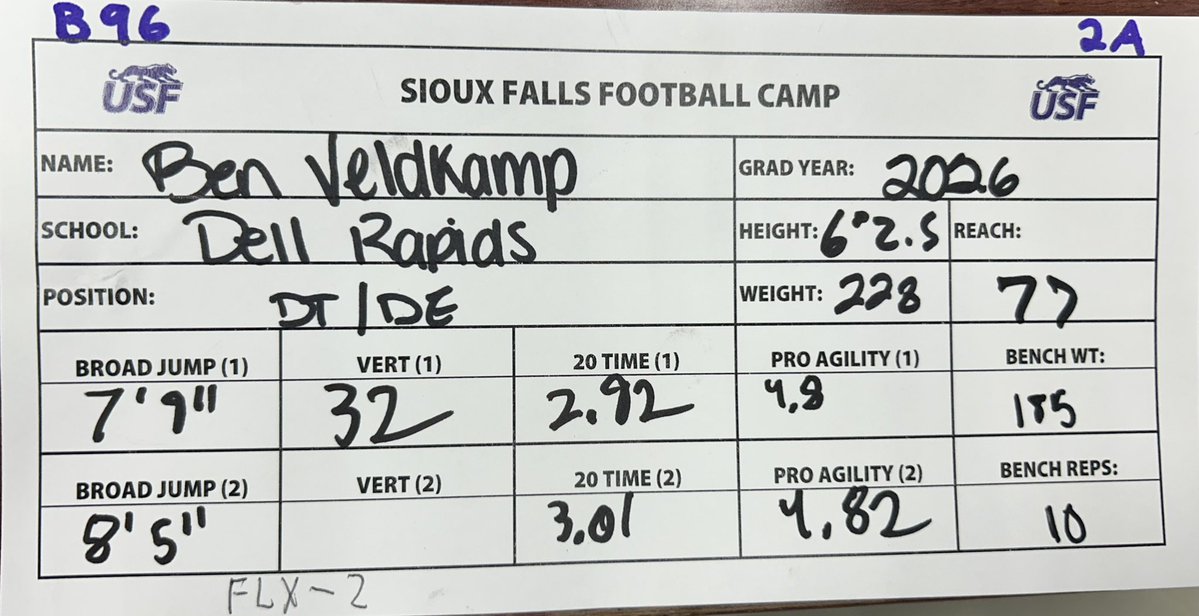 B96 2A
USF SIOUX FALLS FOOTBALL CAMP USF
NAME: Ben Veldkamp GRAD YEAR: 2026
SCHOOL: Dell Rapids HEIGHT: 6"2.5 REACH:
POSITION: DT/DE WEIGHT: 228 77
BROAD JUMP (1) VERT (1) 20 TIME (1) PRO AGILITY (1) BENCH WT:
7'9" 32 2.92 4.8 185
BROAD JUMP (2) VERT (2) 20 TIME (2) PRO AGILITY (2) BENCH REPS:
8'5" 3.01 4.82 10
FLX-2